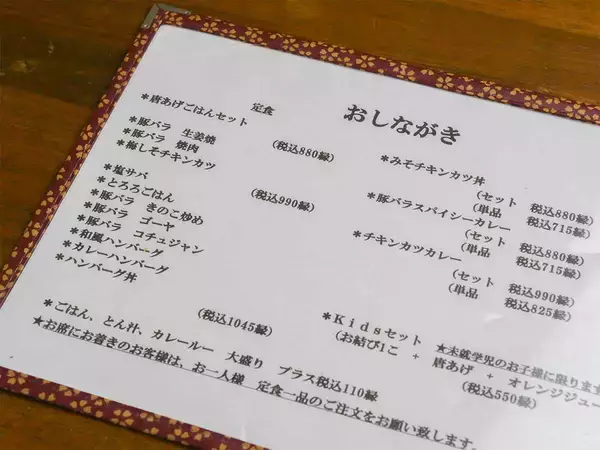 おしながき
定食
*唐あげごはんセット
*豚バラ 生姜焼
*豚バラ 焼肉 (税込880縁)
*梅しそチキンカツ
*塩サバ
*とろろごはん
*豚バラ きのこ炒め (税込990縁)
*豚バラ ゴーヤ
*豚バラ コチュジャン
*和風ハンバーグ
*カレーハンバーグ
*ハンバーグ丼
(税込1045縁)
*ごはん、とん汁、カレールー 大盛り プラス税込110縁
★お席にお着きのお客様は、お一人様 定食一品のご注文をお願い致します。
*みそチキンカツ丼
(セット 税込880縁)
(単品 税込715縁)
*豚バラスパイシーカレー
(セット 税込880縁)
(単品 税込715縁)
*チキンカツカレー
(セット 税込990縁)
(単品 税込825縁)
*Kidsセット ★未就学児のお子様に限ります
(お結び1こ + 唐あげ + オレンジジュー
(税込550縁)